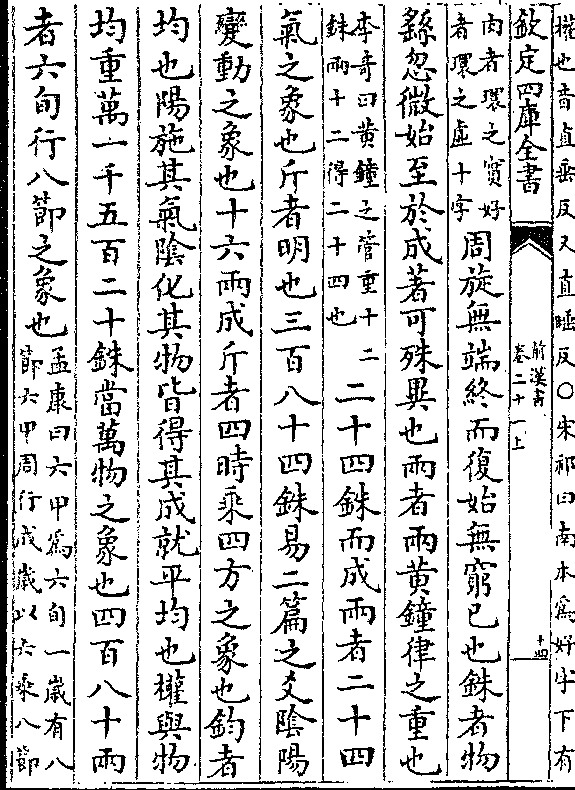 權也音直垂反又直睡反○宋祁曰南本為好字下有
欽定四庫全書
前漢書
卷二十一上
十四
肉者環之實好
者環之虛十字
周旋無端終而復始無窮已也銖者物
繇忽微始至於成著可殊異也兩者兩黃鐘律之重也
李竒曰黃鐘之管重十二
銖兩十二得二十四也
二十四銖而成兩者二十四
氣之象也斤者明也三百八十四銖易二篇之爻陰陽
變動之象也十六兩成斤者四時乘四方之象也鈞者
均也陽施其氣陰化其物皆得其成就平均也權與物
均重萬一千五百二十銖當萬物之象也四百八十兩
者六旬行八節之象也
孟康曰六甲為六旬一嵗有八
節六甲周行成嵗以六乘八節